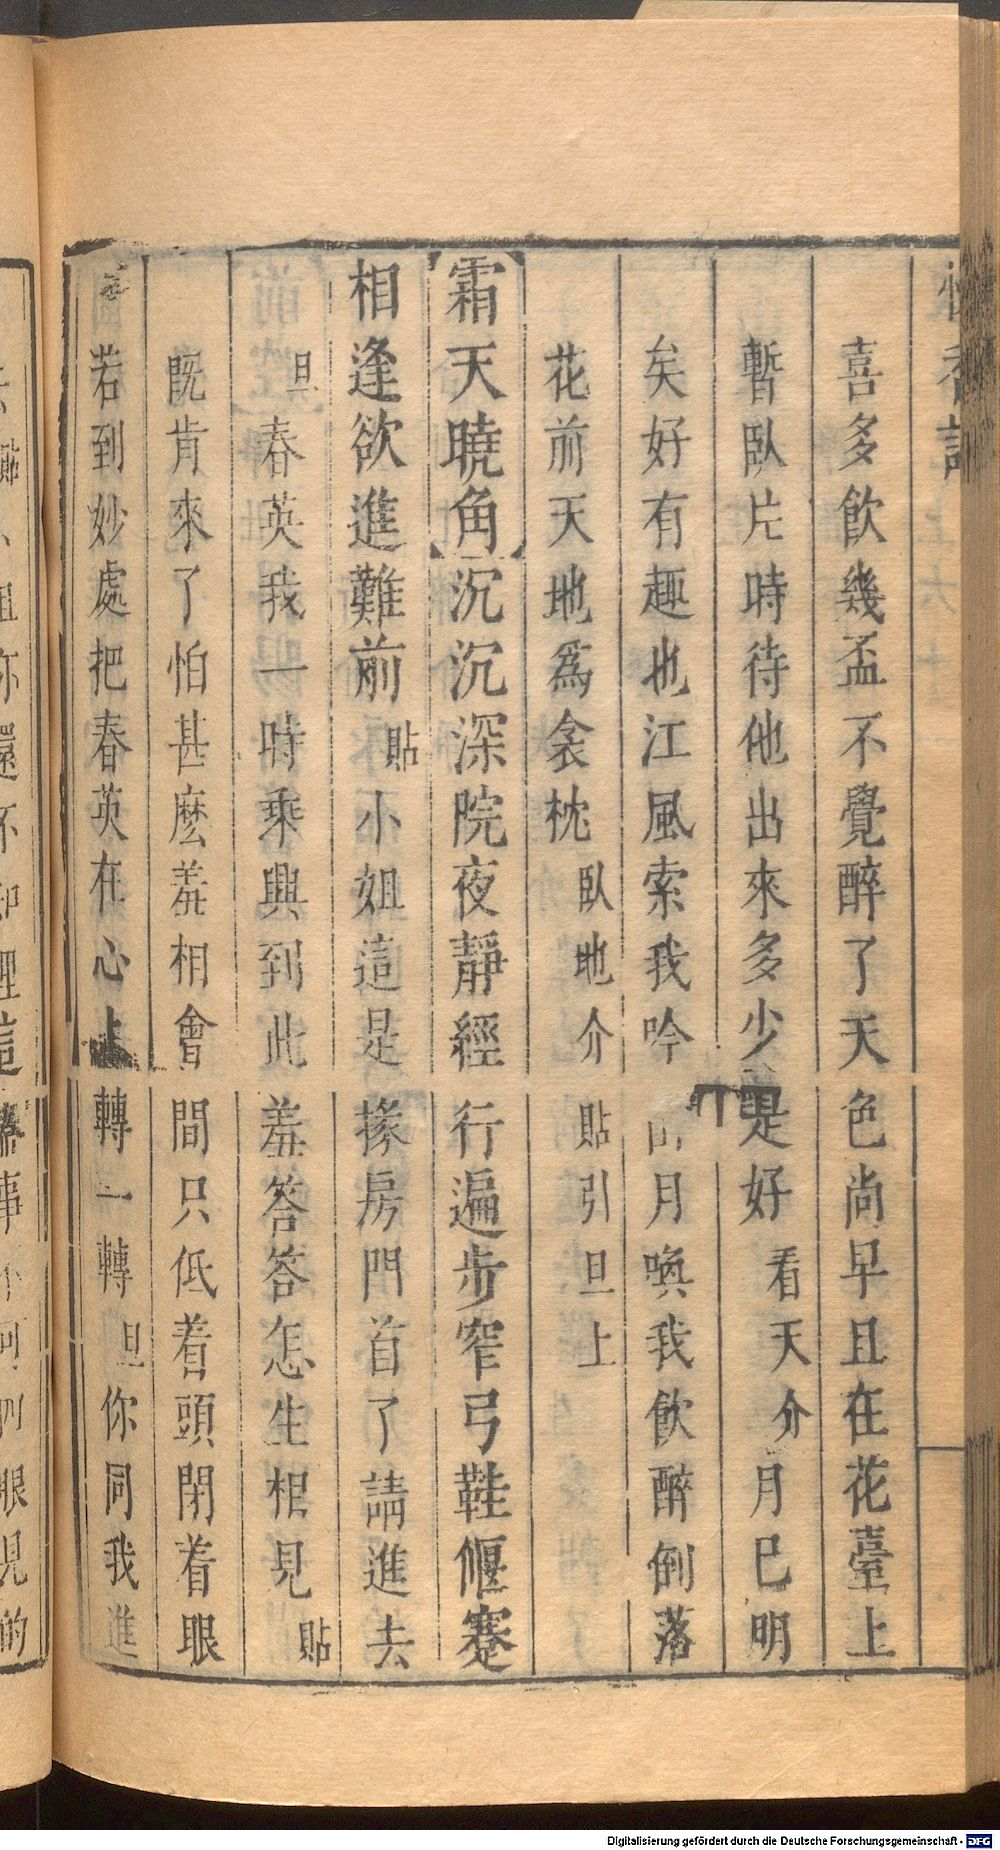 喜多飲幾盃不覺醉了天色尚早且在花臺上
暫臥片時待他出來多少是好看天介月已明
矣好有趣也江風索我吟月喚我飲醉倒落
花前天地為衾枕臥地介貼引旦上
霜天曉角沉沉深院夜靜經行遍步窄弓鞋偃蹇
相逢欲進難前貼小姐這是掾房門首了請進去
旦春英我一時乘興到此羞答答怎生相見貼
既肯來了怕甚麽羞相會間只低着頭閉着眼
若到妙處把春英在心上轉一轉旦你同我進
Digitalisierung gefördert durch die Deutsche Forschungsgemeinschaft - DFG